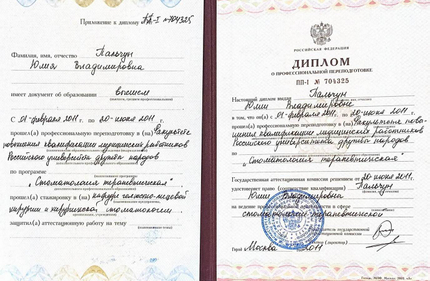 Приложение к диплому ПП-I №704325
Фамилия, имя, отчество Пальчун
Юлия Владимировна
имеет документ об образовании высшем
С 01 февраля 2011 г. по 20 июня 2011
прошел(а) профессиональную переподготовку в (на) Факультете
повышения квалификации медицинских работников
Российского университета дружбы народов
по программе
"Стоматология терапевтическая"
прошел(а) стажировку в (на) кафедре челюстно-лицевой
хирургии и хирургической стоматологии
защитил(а) аттестационную работу на тему
РОССИЙСКАЯ ФЕДЕРАЦИЯ
ДИПЛОМ
О ПРОФЕССИОНАЛЬНОЙ ПЕРЕПОДГОТОВКЕ
ПП-I № 704325
Настоящий диплом выдан Пальчун
Юлии Владимировне
в том, что он(а) с 01 февраля 2011 г. по 20 июня 2011
прошел(а) профессиональную переподготовку в (на) Факультете повы-
шения квалификации медицинских работников
Российского университета дружбы народов
по
"Стоматология терапевтическая"
Государственная аттестационная комиссия решением от 20 июня 2011
удостоверяет право (соответствие квалификации) Пальчун
Юлии Владимировны
на ведение профессиональной деятельности в сфере
стоматологии терапевтической
Город Москва 2011